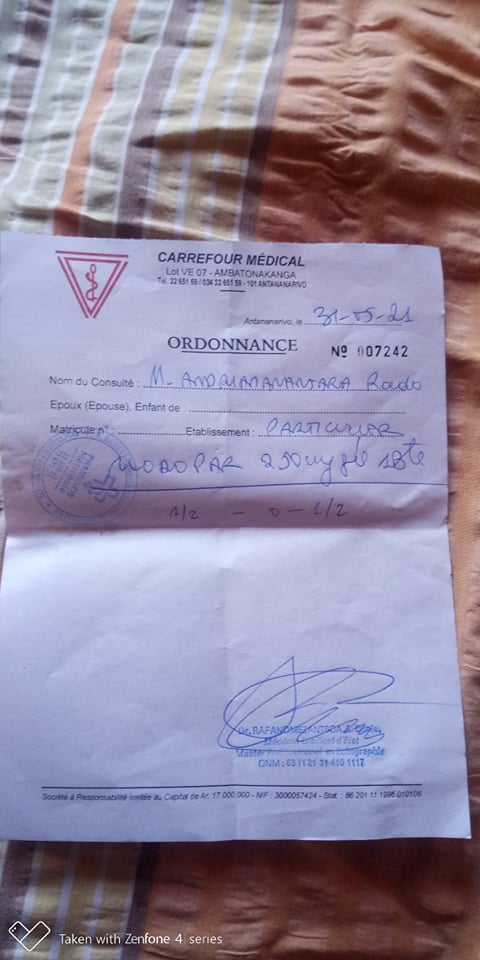 CARREFOUR MÉDICAL
Lot VE 07 - AMBATONAKANGA
Tél. 22 651 59 / 034 22 651 59 - 101 ANTANANARIVO
Antananarivo, le 31-05-21
ORDONNANCE Nº 007242
Nom du Consulté : M. Rado
Epoux (Epouse), Enfant de :
Matricule n° : Etablissement : PARTICULIER
MODOPAR 250mg gel 1Bte
1/2 - 0 - 1/2
Dr.
Médecin Diplômé d'Etat
Master en échographie
Société à Responsabilité limitée au Capital de Ar. 17.000.000 - NIF : 3000057424 - Stat. : 86 201 11 1996 010106
Taken with Zenfone 4 series